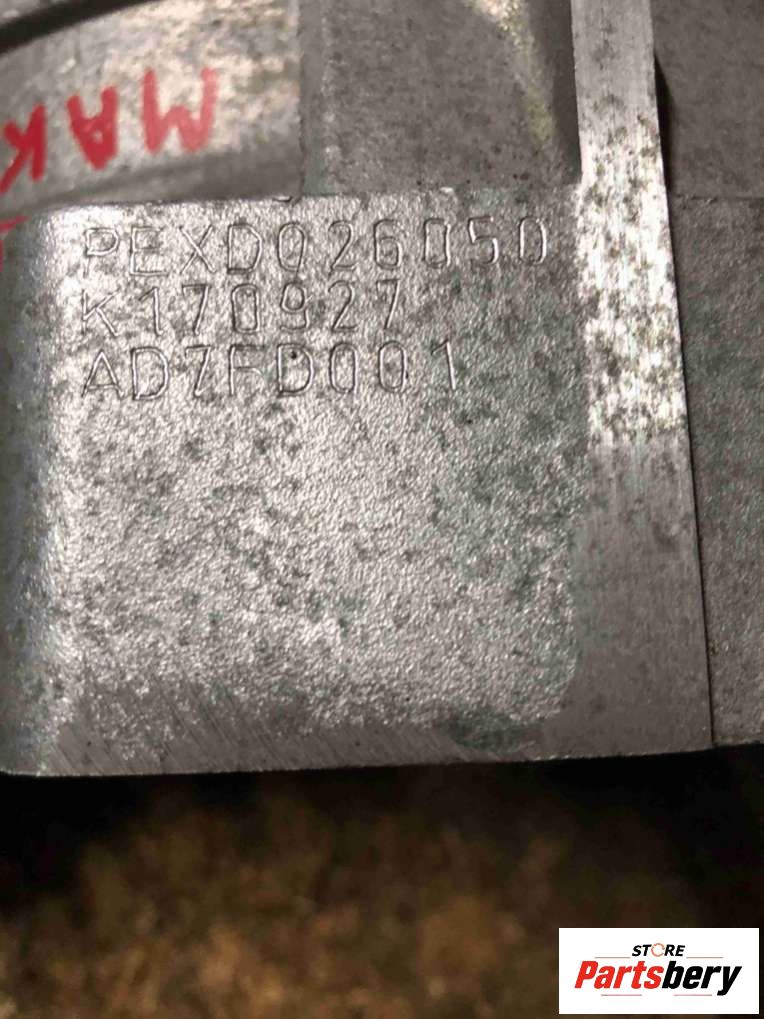 МАК
PEXD026050
K170927
AD7FD001
STORE
Partsbery